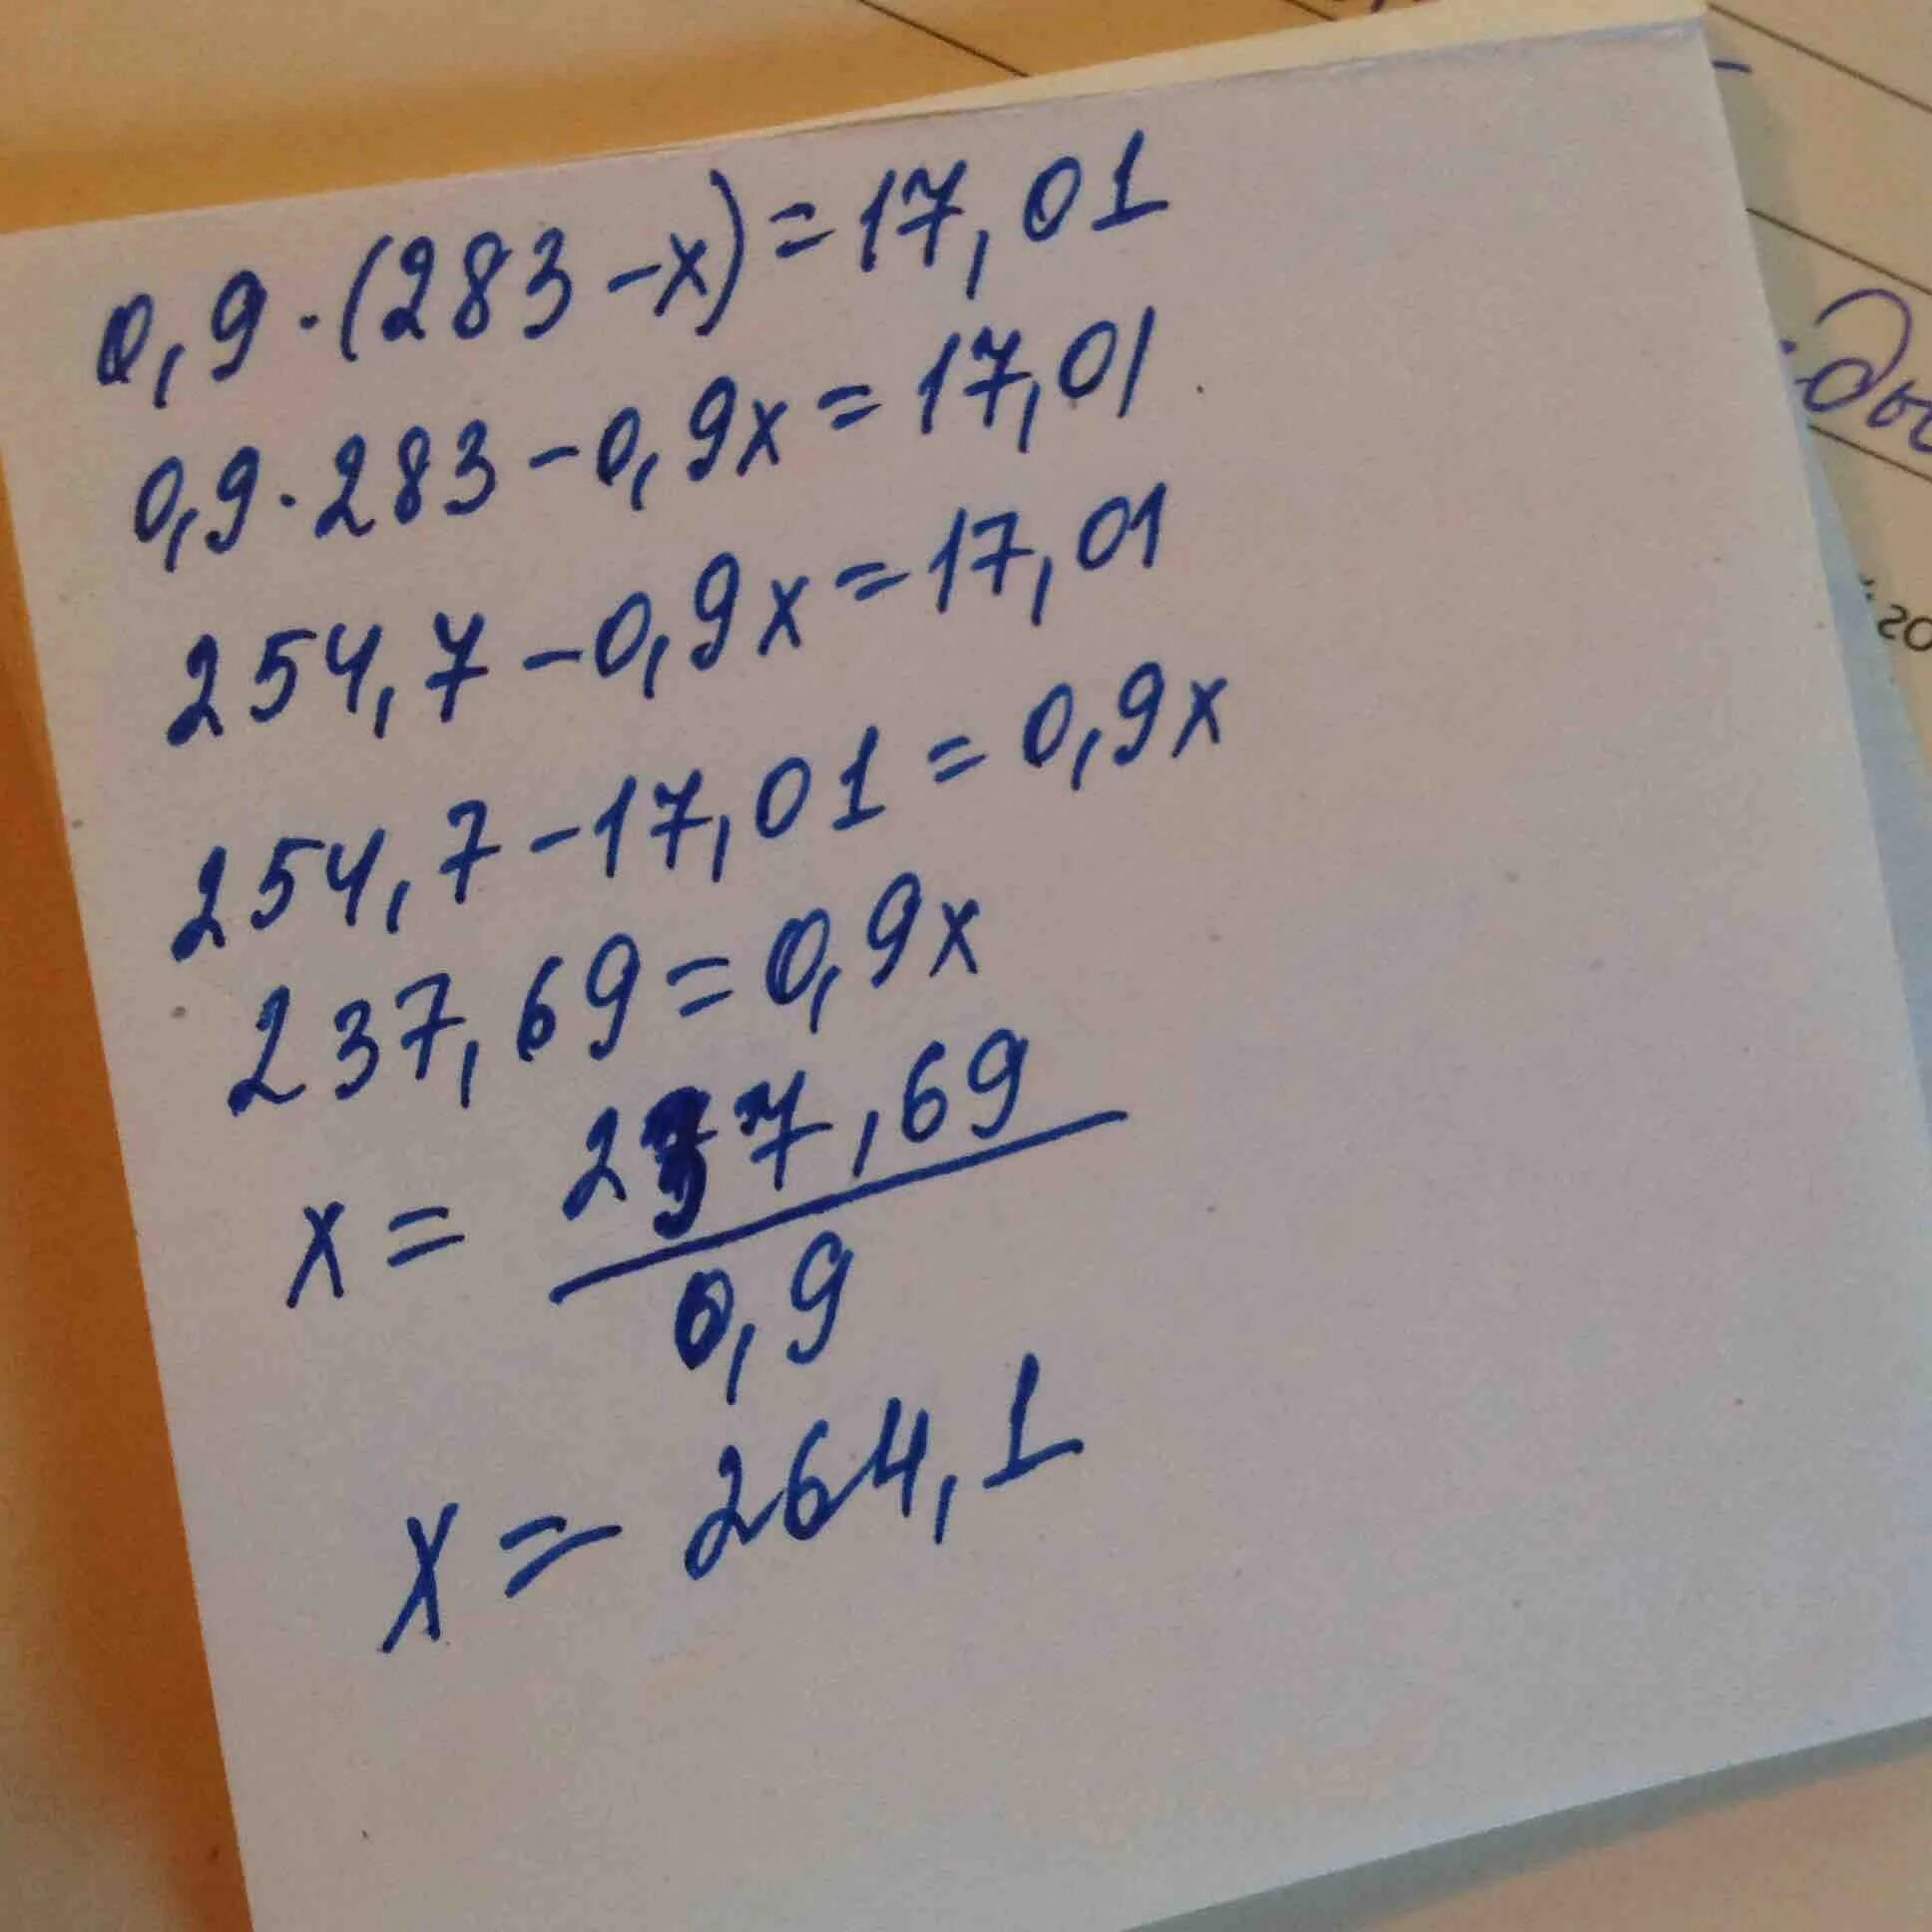 0,9·(283-x)=17,01
0,9·283-0,9x=17,01
254,7-0,9x=17,01
254,7-17,01=0,9x
237,69=0,9x
x= 237,69
0,9
x= 264,1